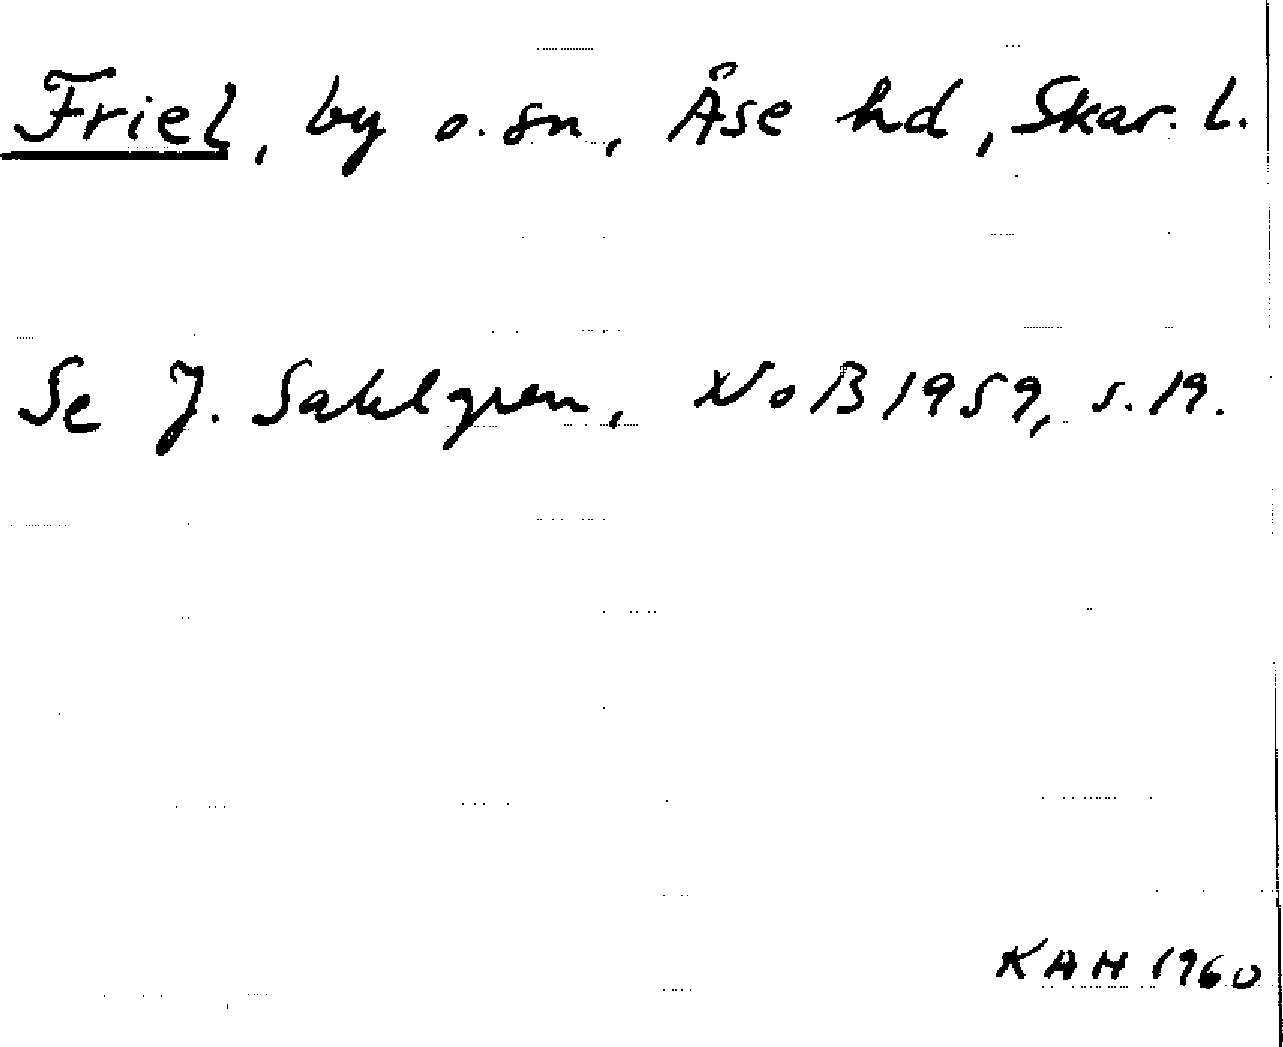 Friel, by o. sn, Åse hd, Skar. l.
Se J. Sahlgren, NoB 1959, s. 19.
KAH 1960